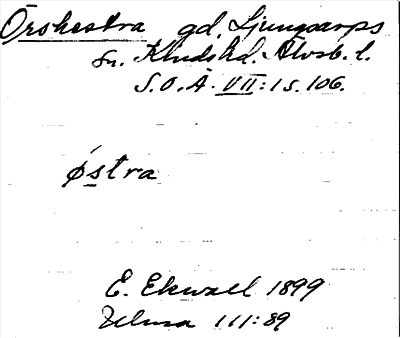 Orskestra gd. Ljungsarps
sn. Kinds hd. Älvsb. l.
S.O.Ä. VII:1 s. 106.
östra
E. Ekwall 1899
Ulma 111:89